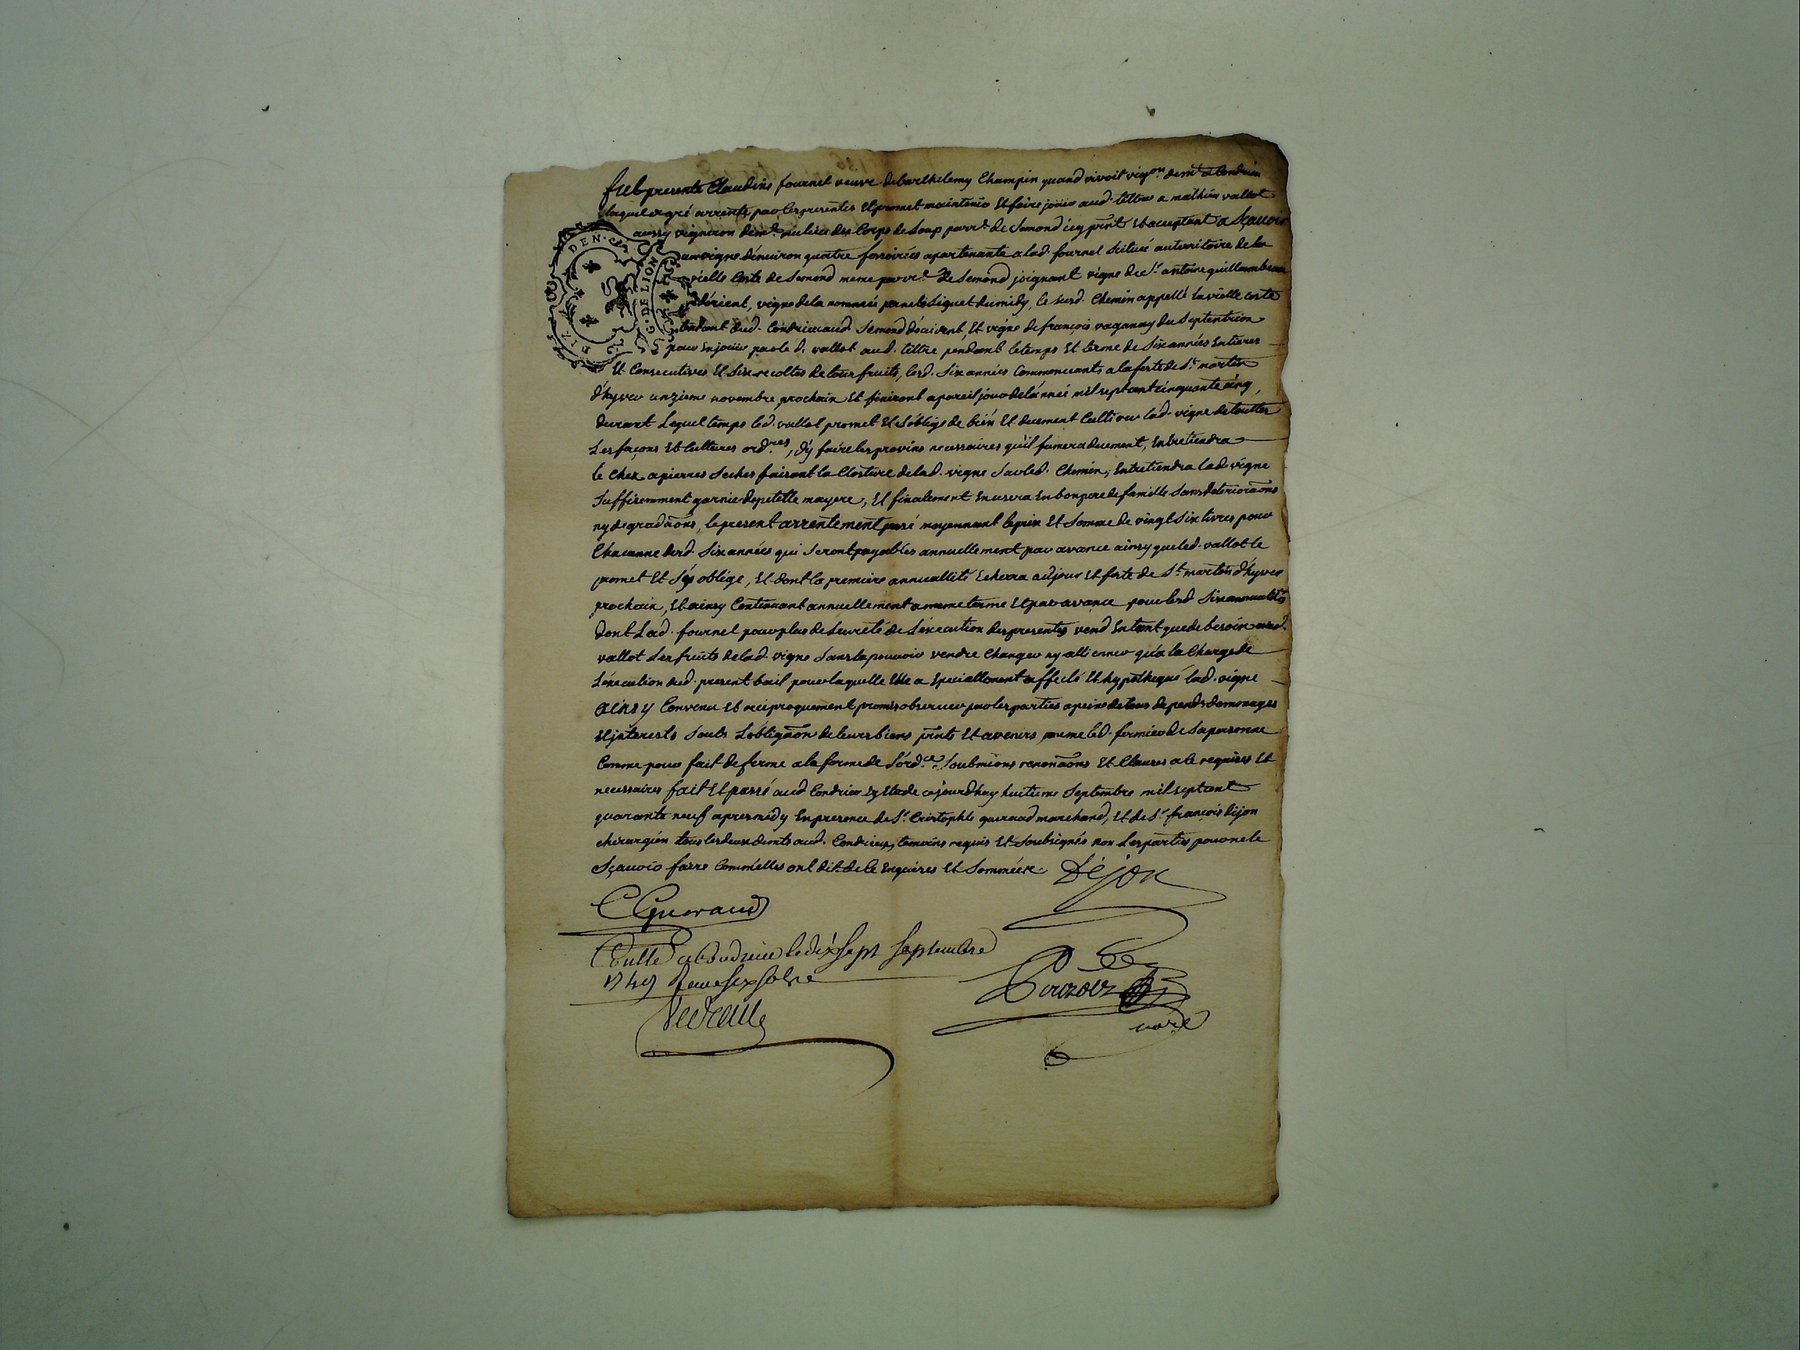 fut presente Claudine fournel veuve de barthelemy Champin quand vivoit vig.on dem.t a Condrieu
laquelle a gré arrente par les presentes et promet maintenir et faire jouir aud. tittre a mathieu vallot
aussy vigneron dem.t au lieu des Corps de Loup parr.e de Semond icy pñt et acceptant a Sçavoir
une vigne d'environ quatre fossoirées apartenante a lad. fournel Scituée au territoire de la
vielle Coste de Semond meme parr.e de Semond joignant vigne de S.r antoine guillambeau
d'orient, vigne de la nommée du midy, le surd. Chemin appellé la vielle coste
tendant dud. Condrieu aud. Semond d'occident, Et vigne de françois vaganay du Septentrion
pour En jouir par le d. vallot aud. tittre pendant le temps Et terme de Six années Entieres
Et Consecutives Et Six recoltes de tous fruits, lesd. Six années Commencants a la feste de S.t martin
d'hyver unzieme novembre prochain Et finiront a pareil jour de l'année mil sept cent cinquante cinq,
durant Lequel temps led. vallot promet Et s'oblige de bien Et duement Cultiver lad. vigne de touttes
Les façons Et Cultures ord.res, d'y faire les provins necessaires qu'il fumera duement, Entretiendra
le Cher a pierres Seches faisant la Closture de lad. vigne Sur led. Chemin, Entretiendra lad. vigne
Suffisemment garnie de petitte mayere, Et finalement En usera En bon pere de famille Sans deterioraõns
ny degradaõns, le present arrentement passé moyennant le prix Et Somme de vingt Six livres pour
Chacunne desd. Six années qui Seront payables annuellement par avance ainsy que led. vallot le
promet Et S'y oblige, Et dont la premiere annuallité Echerra au jour Et feste de S.t martin d'hyver
prochain, Et ainsy Continuant annuellement a meme terme Et par avance pour lesd. Six annualités
dont Lad. fournel pour plus de Seureté de L'execution des presentes vend En tant que de besoin aud.
vallot Les fruits de lad. vigne Sans la pouvoir vendre Changer ny alliener qu'a la Charge de
L'execution dud. present bail pour laquelle Elle a Speciallement affecté Et hypothequé lad. vigne
ainsy Convenu Et reciproquement promis observer par les parties a peine de tous depends domages
Et interests Soubs L'obligaõn de leurs biens pñts Et avenirs meme led. fermier de Sa personne
Comme pour fait de ferme a la forme de L'ord.ce, Soubmions renonaõns Et Clauses a ce requises Et
necessaires fait Et passé aud. Condrieu Estude ce jourd'huy huitieme Septembre mil sept cent
quarante neuf apres midy En presence de S.r Cristophle gueraud marchand, Et de S.r françois dejon
chirurgien tous les deux dem.ts aud. Condrieu, temoins requis Et Soubsignés non Les parties pour ne le
Sçavoir faire Comm'elles ont dit de ce Enquises Et Sommées. Dejon
C Gueraud
Con.llé a Condrieu le dix sept Septembre
1749 Receu six sols
nore
DEN.
G. DE LION